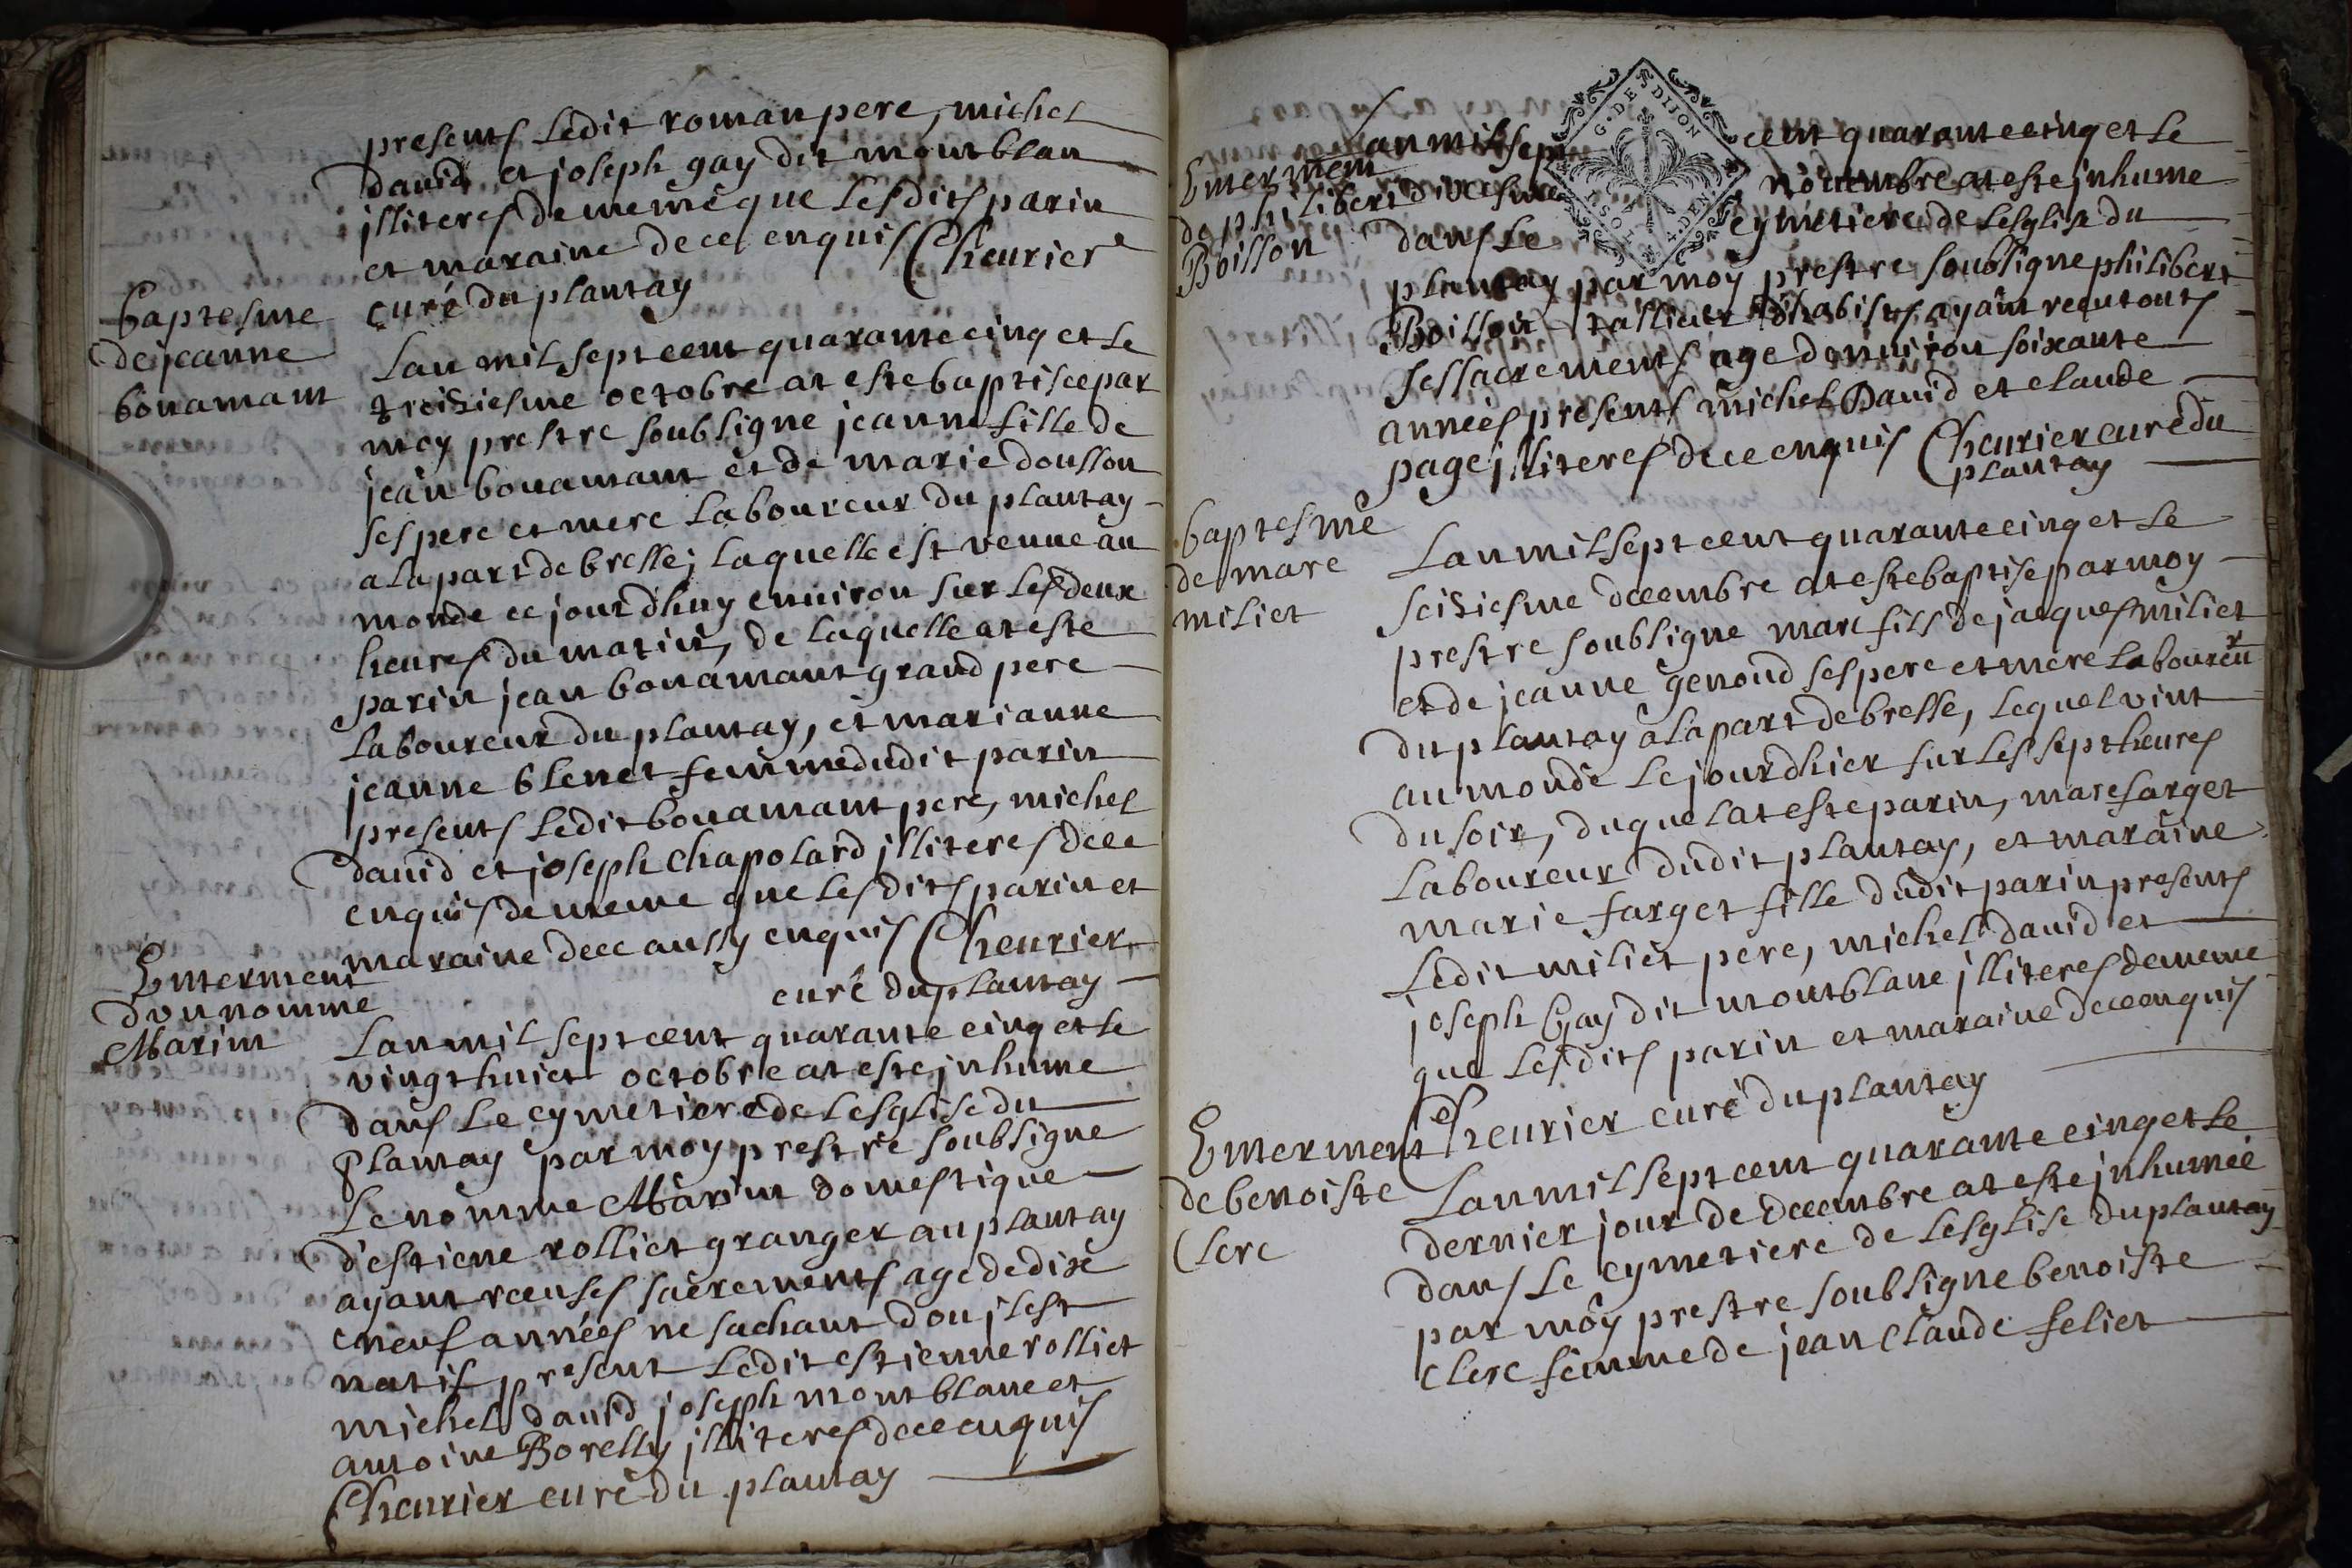 presents ledit roman pere, michel
david et joseph gay dit montblan
jlliteres de meme que lesdits parin
et maraine de ce enquis Cheurier
curé du plantay
baptesme
de jeanne
bonamant
Lan mil sept cent quarante cinq et le
treiziesme octobre at este baptisee par
moy prestre soubsigne jeanne fille de
jean bonamant et de marie dousson
ses pere et mere laboureur du plantay
a la part de bresse; laquelle est venue au
monde ce jourdhuy environ sur les deux
heures du matin, de laquelle at este
parin jean bonamant grand pere
laboureur du plantay, et marianne
jeanne blenet femme dudit parin
presents ledit bonamant pere, michel
david et joseph chapolard jlliteres de ce
enquis de meme que lesdits parin et
maraine de ce aussy enquis Cheurier
curé du plantay
Enterment
dvn nomme
Marin
Lan mil sept cent quarante cinq et le
vingthuict octobre at este jnhume
dans le cymetiere de lesglise du
plantay par moy prestre soubsigne
le nomme Marin domestique
d'estiene rolliet granger au plantay
ayant receu ses sacrements age de dixe
neuf années ne sachant dou jl est
natif present ledit estienne rolliet
michel david joseph montblanc et
antoine Borelly jlliteres de ce enquis
Cheurier curé du plantay
Enterment
de philibert
Boisson
Lan mil sept cent quarante cinq et le
G. DE DIJON
novembre at este jnhume
dans le cymetiere de lesglise du
plantay par moy prestre soubsigne philibert
Boisson tallieur dhabits ayant receu touts
ses sacrements age denuiron soixante
années presents michel David et claude
page jlliteres de ce enquis Cheurier curé du
plantay
baptesme
de marc
miliet
Lan mil sept cent quarante cinq et le
seiziesme decembre at este baptise par moy
prestre soubsigne marc fils de jacques miliet
et de jeanne genoud ses pere et mere laboureur
du plantay a la part de bresse, lequel vint
au monde le jourdhier sur les sept heures
du soir, duquel at este parin, marc farget
laboureur dudit plantay, et maraine
marie farget fille dudit parin presents
ledit miliet pere, michel david et
joseph Gay dit montblanc jlliteres de meme
que lesdits parin et maraine de ce enquis
Cheurier curé du plantay
Enterment
de benoiste
Clerc
Lan mil sept cent quarante cinq et le
dernier jour de decembre at este jnhumée
dans le cymetiere de lesglise du plantay
par moy prestre soubsigne benoiste
Clerc femme de jean claude feliet